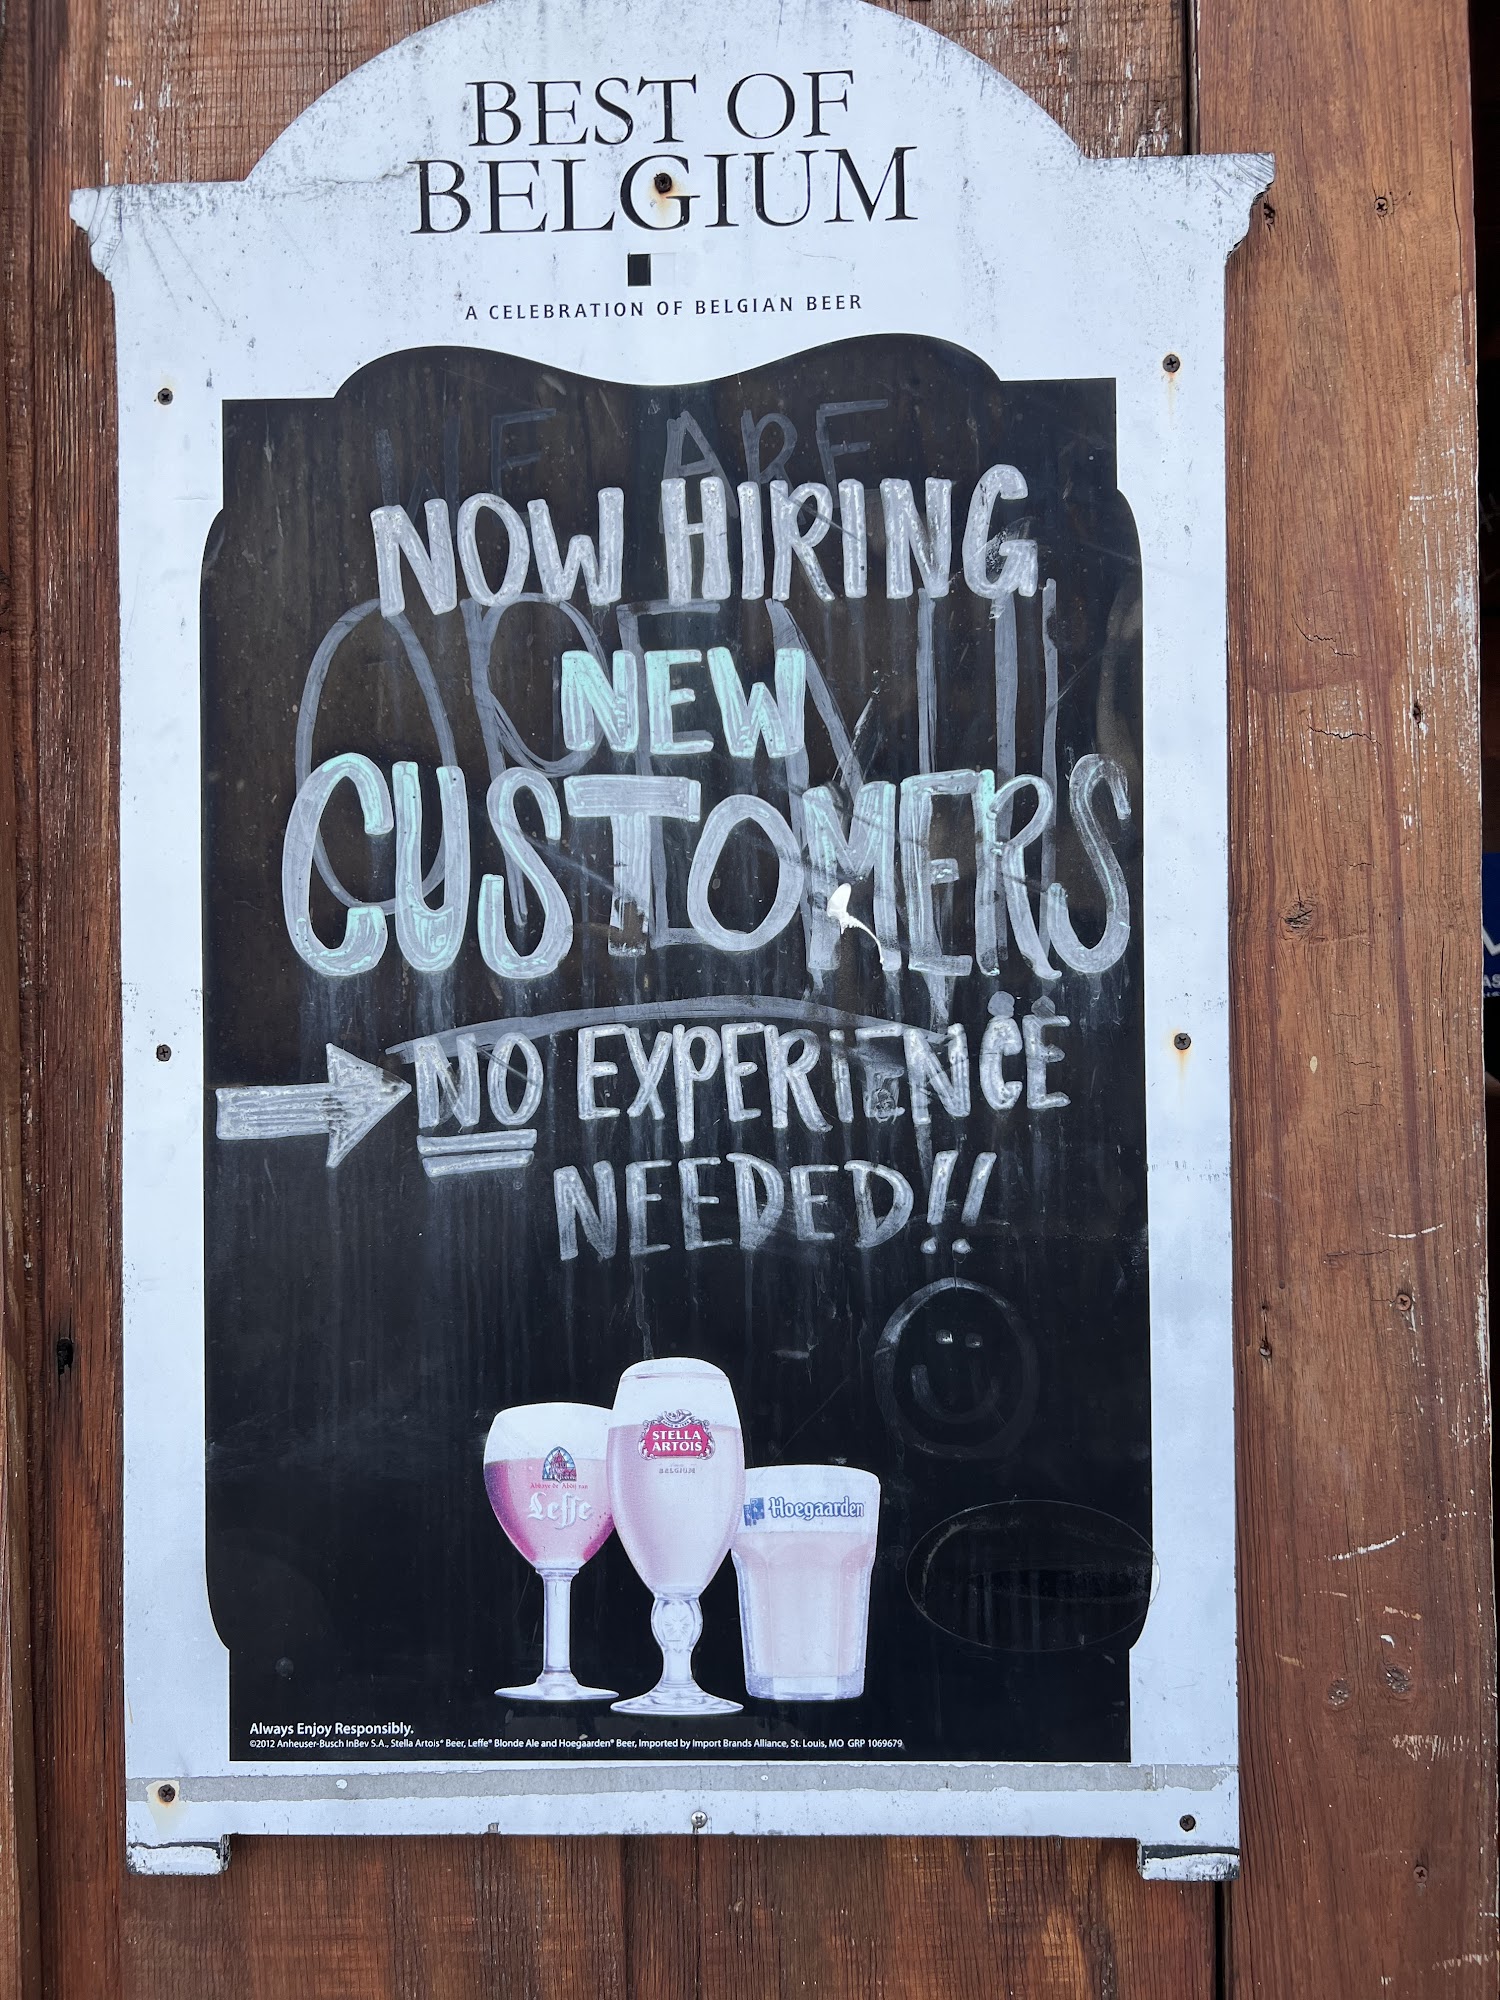 BEST OF
BELGIUM
A CELEBRATION OF BELGIAN BEER
WE ARE
NOW HIRING
OPEN!!
NEW
CUSTOMERS
NO EXPERIENCE
NEEDED!!
STELLA
ARTOIS
BELGIUM
Leffe
Hoegaarden
Always Enjoy Responsibly.
©2012 Anheuser-Busch InBev S.A., Stella Artois® Beer, Leffe® Blonde Ale and Hoegaarden® Beer, Imported by Import Brands Alliance, St. Louis, MO GRP 1069679